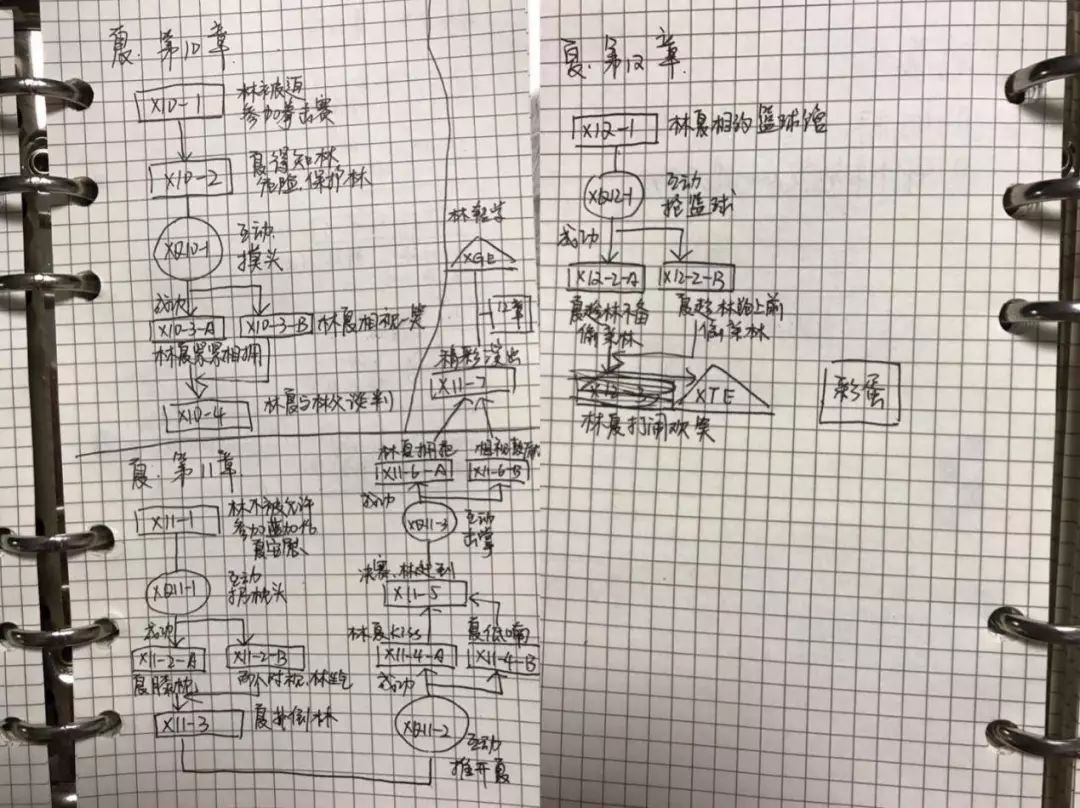 夏.第10章
X10-1
林被迫
参加拳击赛
X10-2
夏得知林
危险.保护林
XQ10-1
互动.
摸头
成功
X10-3-A
X10-3-B
林夏相视一笑
林夏紧紧相拥
X10-4
林夏与林父谈判
林转学
XGE
12章
精彩演出
X11-7
夏.第11章
X11-1
林不被允许
参加
夏安慰
XQ11-1
互动
扔枕头
成功
X11-2-A
X11-2-B
夏膝枕
两人对视.林
X11-3
夏扑倒林
林夏拥抱
X11-6-A
X11-6-B
成功
XQ11-3
互动
击掌
决赛.林赶到
X11-5
林夏kiss
夏低喃
X11-4-A
X11-4-B
成功
XQ11-2
互动
推开夏
夏.第12章
X12-1
林夏相约篮球馆
XQ12-1
互动
抢篮球
成功
X12-2-A
X12-2-B
夏趁林不备
偷亲林
夏趁林跑上前
偷亲林
XTE
林夏打闹欢笑
彩蛋